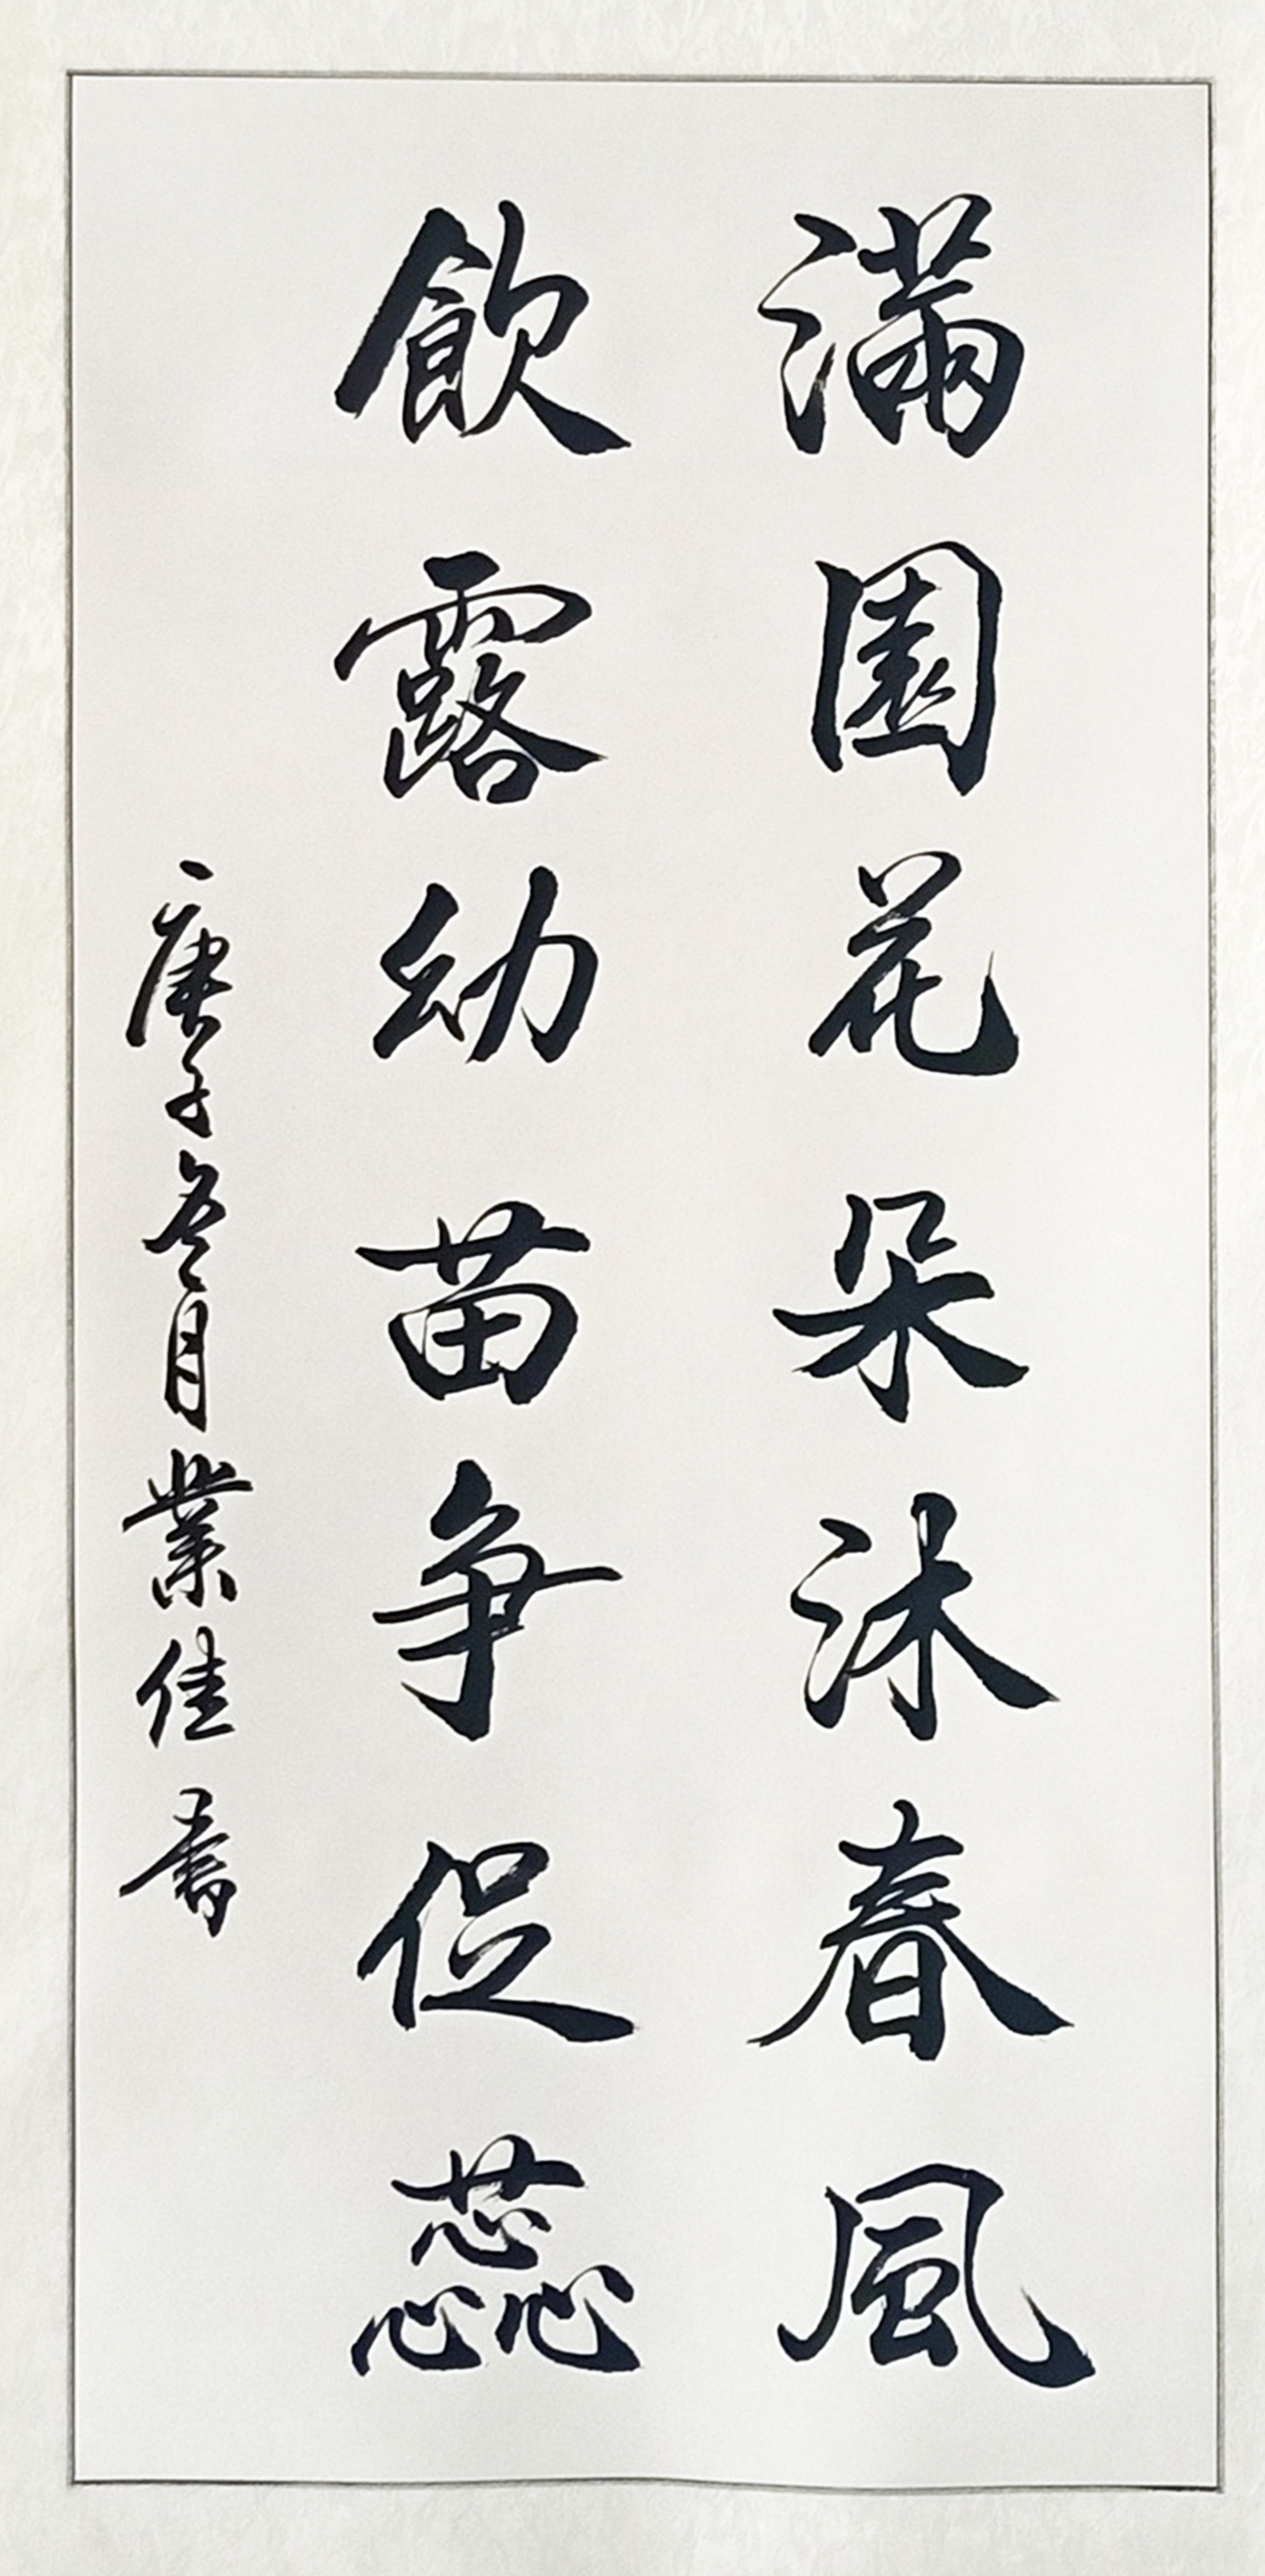 滿園花朵沐春風
飲露幼苗争促蕊
庚子冬月業佳書